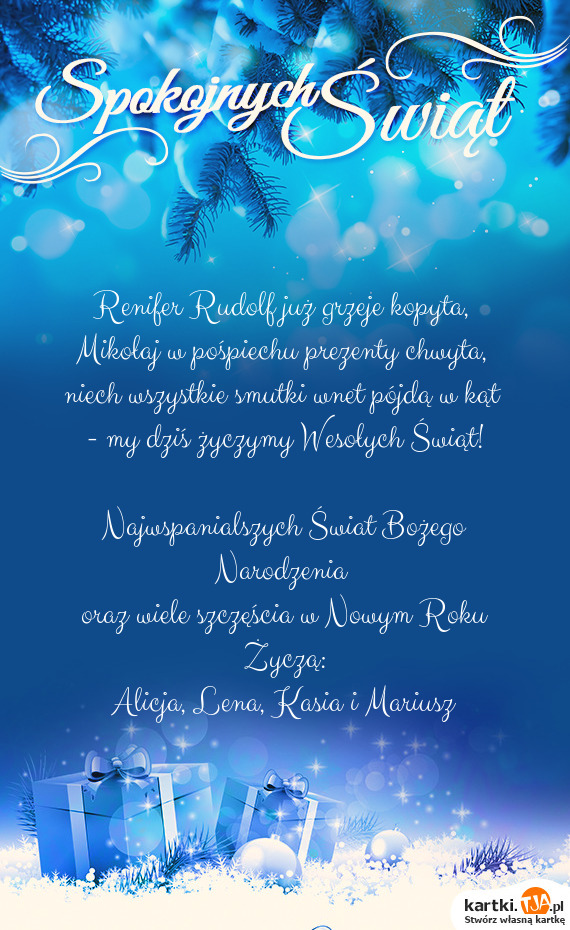 Spokojnych Świąt
Renifer Rudolf już grzeje kopyta,
Mikołaj w pośpiechu prezenty chwyta,
niech wszystkie smutki wnet pójdą w kąt
- my dziś życzymy Wesołych Świąt!
Najwspanialszych Świat Bożego
Narodzenia
oraz wiele szczęścia w Nowym Roku
Życzą:
Alicja, Lena, Kasia i Mariusz
kartki.TJA.pl
Stwórz własną kartkę